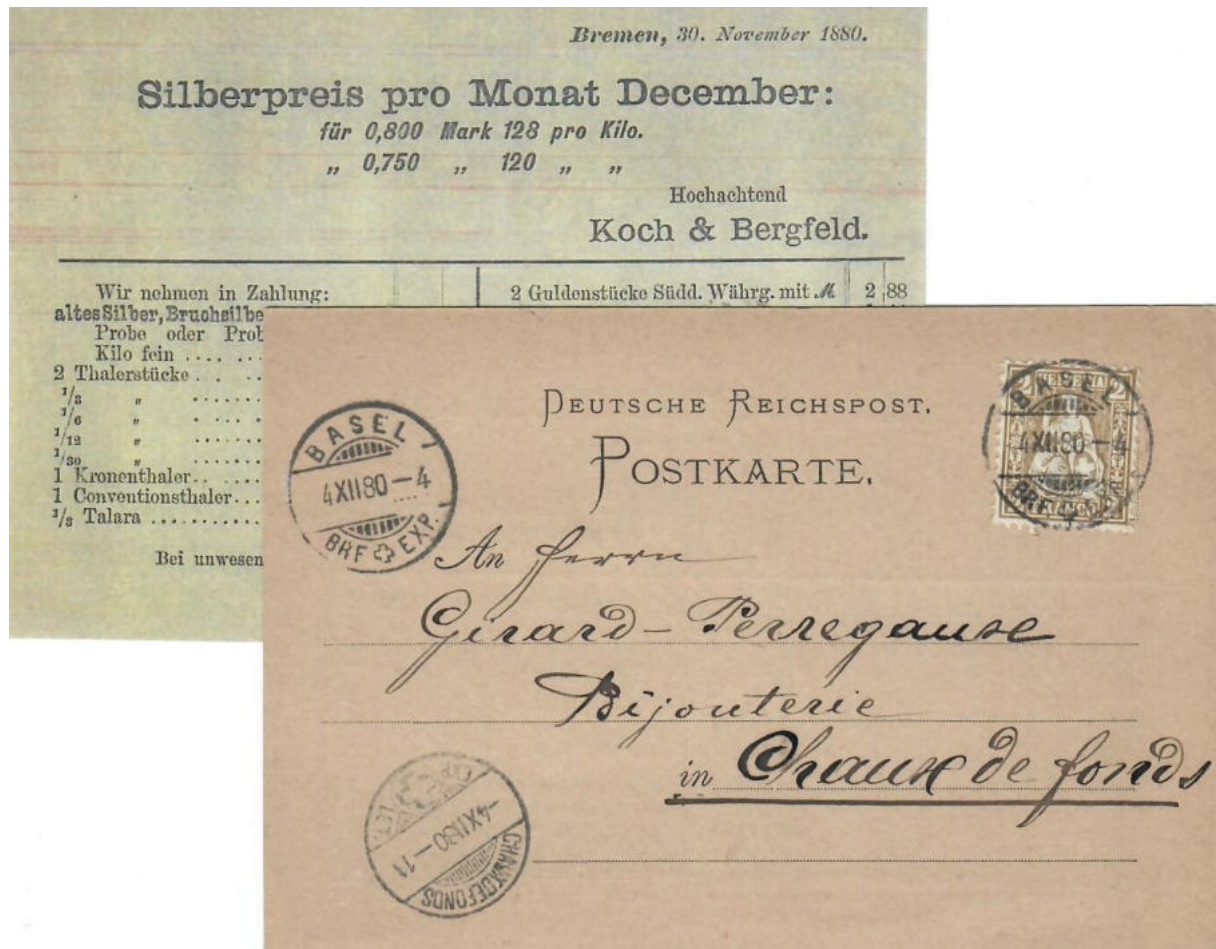 Bremen, 30. November 1880.
Silberpreis pro Monat December:
für 0,800 Mark 128 pro Kilo.
„ 0,750 „ 120 „ „
Hochachtend
Koch & Bergfeld.
Wir nehmen in Zahlung:
altes Silber, Bruchsilbe
Probe oder Prob
Kilo fein ........
2 Thalerstücke . . ..
1/3 „ .......
1/6 „ .......
1/12 „ .......
1/30 „ .......
1 Kronenthaler.. .....
1 Conventionsthaler...
2/3 Talara ...........
Bei unwesen
2 Guldenstücke Südd. Währg. mit M. 2 88
DEUTSCHE REICHSPOST.
POSTKARTE.
2 HELVETIA 2
BASEL
4 XII 80 – 4
BRF EXP.
BASEL
4 XII 80 – 4
BRF EXP.
An Herrn
Girard-Perregause
Bijouterie
in Chaux de fonds
EXP. LET.
-4 XII 80 – 11
CHAUX DE FONDS